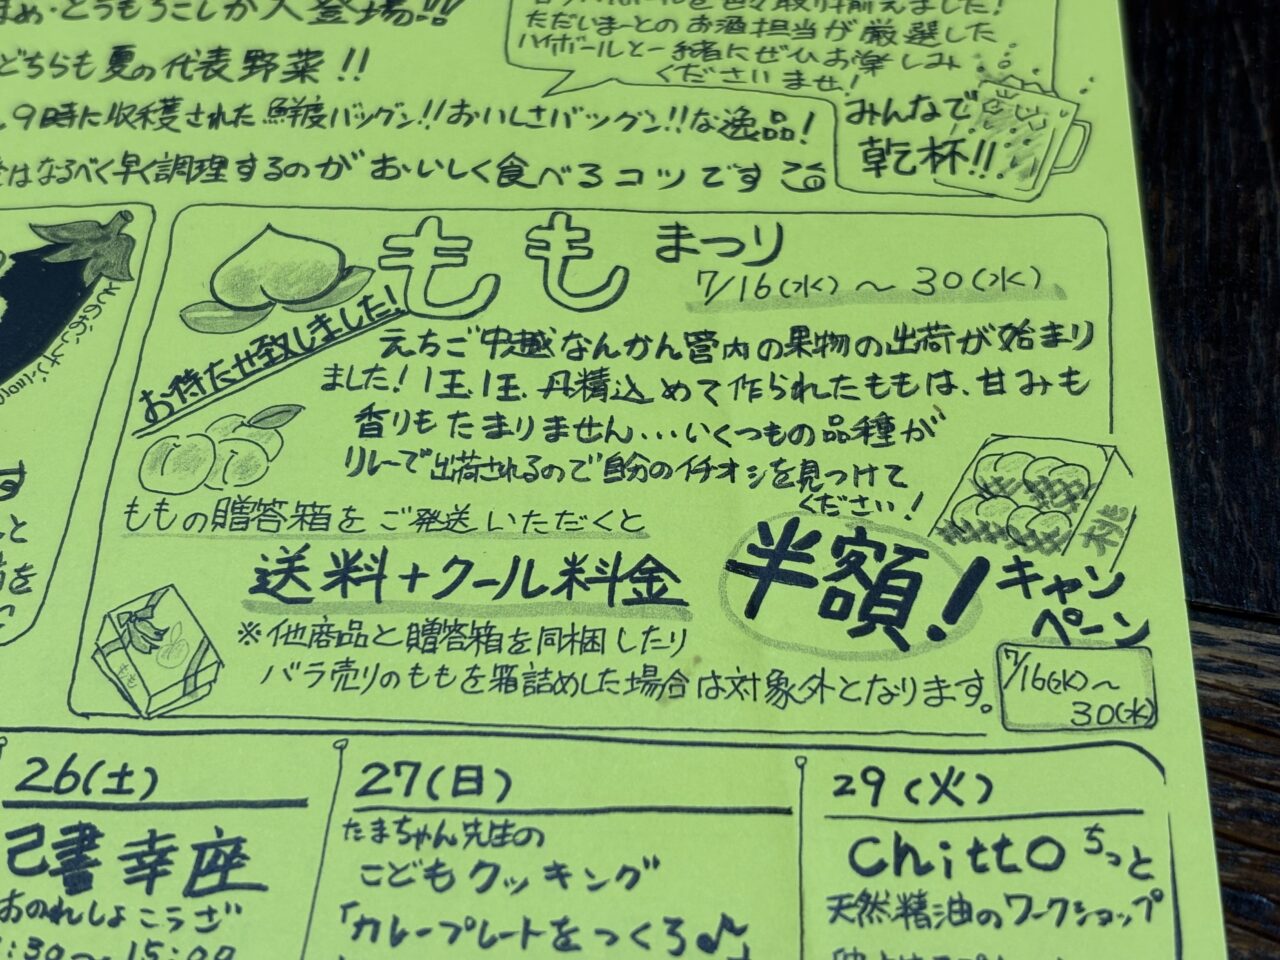 とうもろこしが大登場!!!
どちらも夏の代表野菜!!
9時に収穫された鮮度バッグン!!おいしさバッグン!!な逸品!
はなるべく早く調理するのがおいしく食べるコツです
ただいまーとのお酒担当が厳選した
ハイボールと一緒にぜひお楽しみ
くださいませ!
みんなで
乾杯!!
ももまつり
7/16(水)～30(水)
お待たせ致しました!
えちご中越なんかん管内の果物の出荷が始まり
ました!1玉、1玉、丹精込めて作られたももは、甘みも
香りもたまりません…いくつもの品種が
リレーで出荷されるので自分のイチオシを見つけて
ください!
ももの贈答箱をご発送いただくと
送料+クール料金
半額!
キャン
ペーン
※他商品と贈答箱を同梱したり
バラ売りのももを箱詰めした場合は対象外となります。
7/16(水)～
30(水)
もも
桃
26(土)
己書幸座
おのれしょこうざ
:30～15:00
27(日)
たまちゃん先生の
こどもクッキング
「カレープレートをつくろ♪」
29(火)
chitto ちっと
天然精油のワークショップ